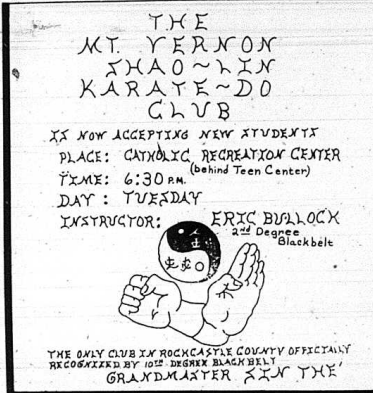 THE
MT. VERNON
SHAO~LIN
KARATE~DO
CLUB
IS NOW ACCEPTING NEW STUDENTS
PLACE: CATHOLIC RECREATION CENTER
(behind Teen Center)
TIME: 6:30 P.M.
DAY: TUESDAY
INSTRUCTOR: ERIC BULLOCK
2nd Degree
Blackbelt
THE ONLY CLUB IN ROCKCASTLE COUNTY OFFICIALLY
RECOGNIZED BY 10TH DEGREE BLACKBELT
GRANDMASTER SIN THE'